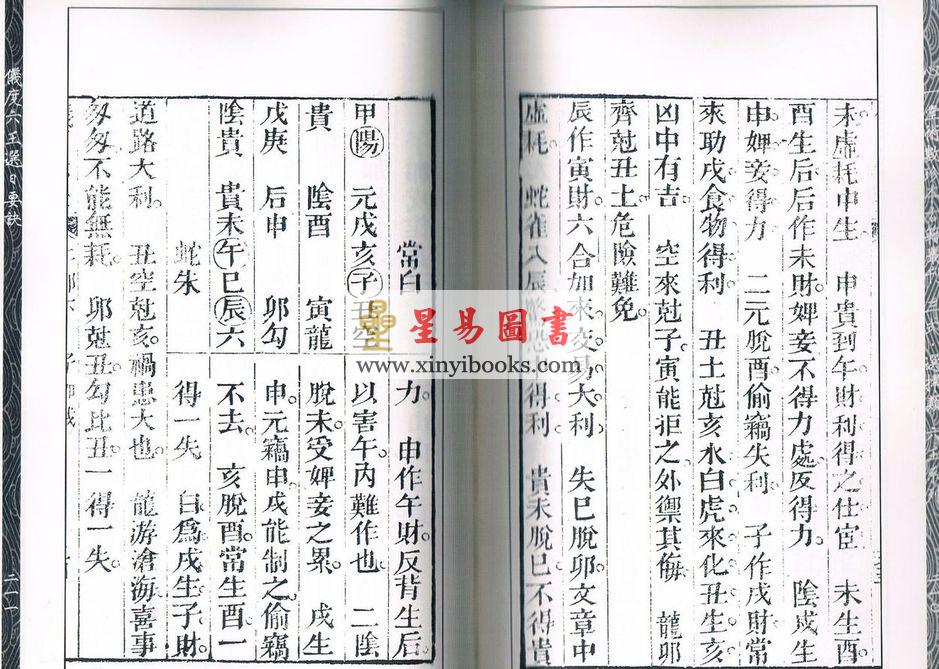 未虛耗申生　申貴到午財利得之仕宦　未生酉
酉生后后作未財婢妾不得力處反得力　陰戌生
申婢妾得力　二元脫酉偷竊失利　子作戌財常
來助戌食物得利　丑土尅亥水白虎來化丑生亥
凶中有吉　空來尅子寅能拒之外禦其侮　龍卯
齊尅丑土危險難免
辰作寅財六合加來交易大利　失巳脫卯文章中
虛耗　蛇雀入辰　恐　得利　貴未脫巳不得貴
常白
甲陽　元戌亥子丑空
貴　陰酉　寅龍
戊庚　后申　卯勾
陰貴　貴未午巳辰六
蛇朱
力　申作午財反背生后
以害午丙難作也　二陰
脫未受婢妾之累　戌生
申元竊申戌能制之偷竊
不去　亥脫酉常生酉一
得一失　白為戌生子財
道路大利　丑空尅亥禍患大也　龍游滄海喜事
匆匆不能無耗　卯尅丑勾比丑一得一失
儀度六壬選日要訣
二一
星易圖書
www.xinyibooks.com